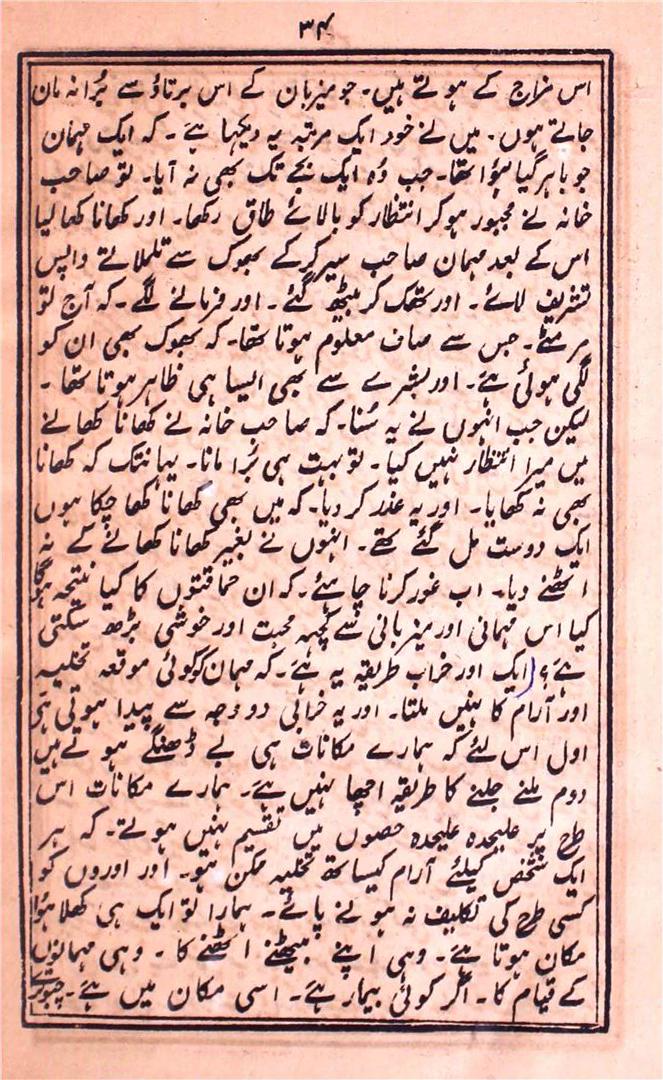 ۳۴
اس مزاج کے ہوتے ہیں۔ جو میزبان کے اس برتاؤ سے بُرا نہ مان
جاتے ہوں۔ میں نے خود ایک مرتبہ یہ دیکہا ہے۔ کہ ایک مہمان
جو باہر گیا ہؤا تھا۔ جب وُہ ایک بجے تک بھی نہ آیا۔ تو صاحب
خانہ نے مجبور ہو کر انتظار کو بالائے طاق رکھا۔ اور کھانا کھا لیا
اس کے بعد مہمان صاحب سیر کر کے بھوک سے تلملاتے واپس
تشریف لائے۔ اور تھک کر بیٹھ گئے۔ اور فرمانے لگے۔ کہ آج تو
مر مٹے۔ جس سے صاف معلوم ہوتا تھا۔ کہ بھوک بھی ان کو
لگی ہوئی ہے۔ اور بشرے سے بھی ایسا ہی ظاہر ہوتا تھا۔
لیکن جب انہوں نے یہ سُنا۔ کہ صاحب خانہ نے کھانا کھانے
میں میرا انتظار نہیں کیا۔ تو بہت ہی بُرا مانا۔ یہانتک کہ کھانا
بھی نہ کھایا۔ اور یہ عذر کر دیا۔ کہ میں بھی کھانا کھا چکا ہوں
ایک دوست مل گئے تھے۔ انہوں نے بغیر کھانا کھانے کے نہ
اٹھنے دیا۔ اب غور کرنا چاہئے۔ کہ ان حماقتوں کا کیا نتیجہ ہوگا
کیا اس مہمانی اور میزبانی سے کچہہ محبت اور خوشی بڑھ سکتی
ہے؟ (ایک اور خراب طریقہ یہ ہے۔ کہ مہمان کو کوئی موقعہ تخلیہ
اور آرام کا نہیں ملتا۔ اور یہ خرابی دو وجہ سے پیدا ہوتی ہی
اول اس لئے کہ ہمارے مکانات ہی بے ڈھنگے ہوتے ہیں
دوم ملنے جلنے کا طریقہ اچھا نہیں ہے۔ ہمارے مکانات اس
طرح پر علیحدہ علیحدہ حصوں میں تقسیم نہیں ہوتے۔ کہ ہر
ایک شخص کیلئے آرام کیساتھ تخلیہ ممکن ہو۔ اور اوروں کو
کسی طرح کی تکلیف نہ ہونے پائے۔ ہمارا تو ایک ہی کھلا ہؤا
مکان ہوتا ہے۔ وہی اپنے بیٹھنے اٹھنے کا۔ وہی مہمانوں
کے قیام کا۔ اگر کوئی بیمار ہے۔ اسی مکان میں ہے۔